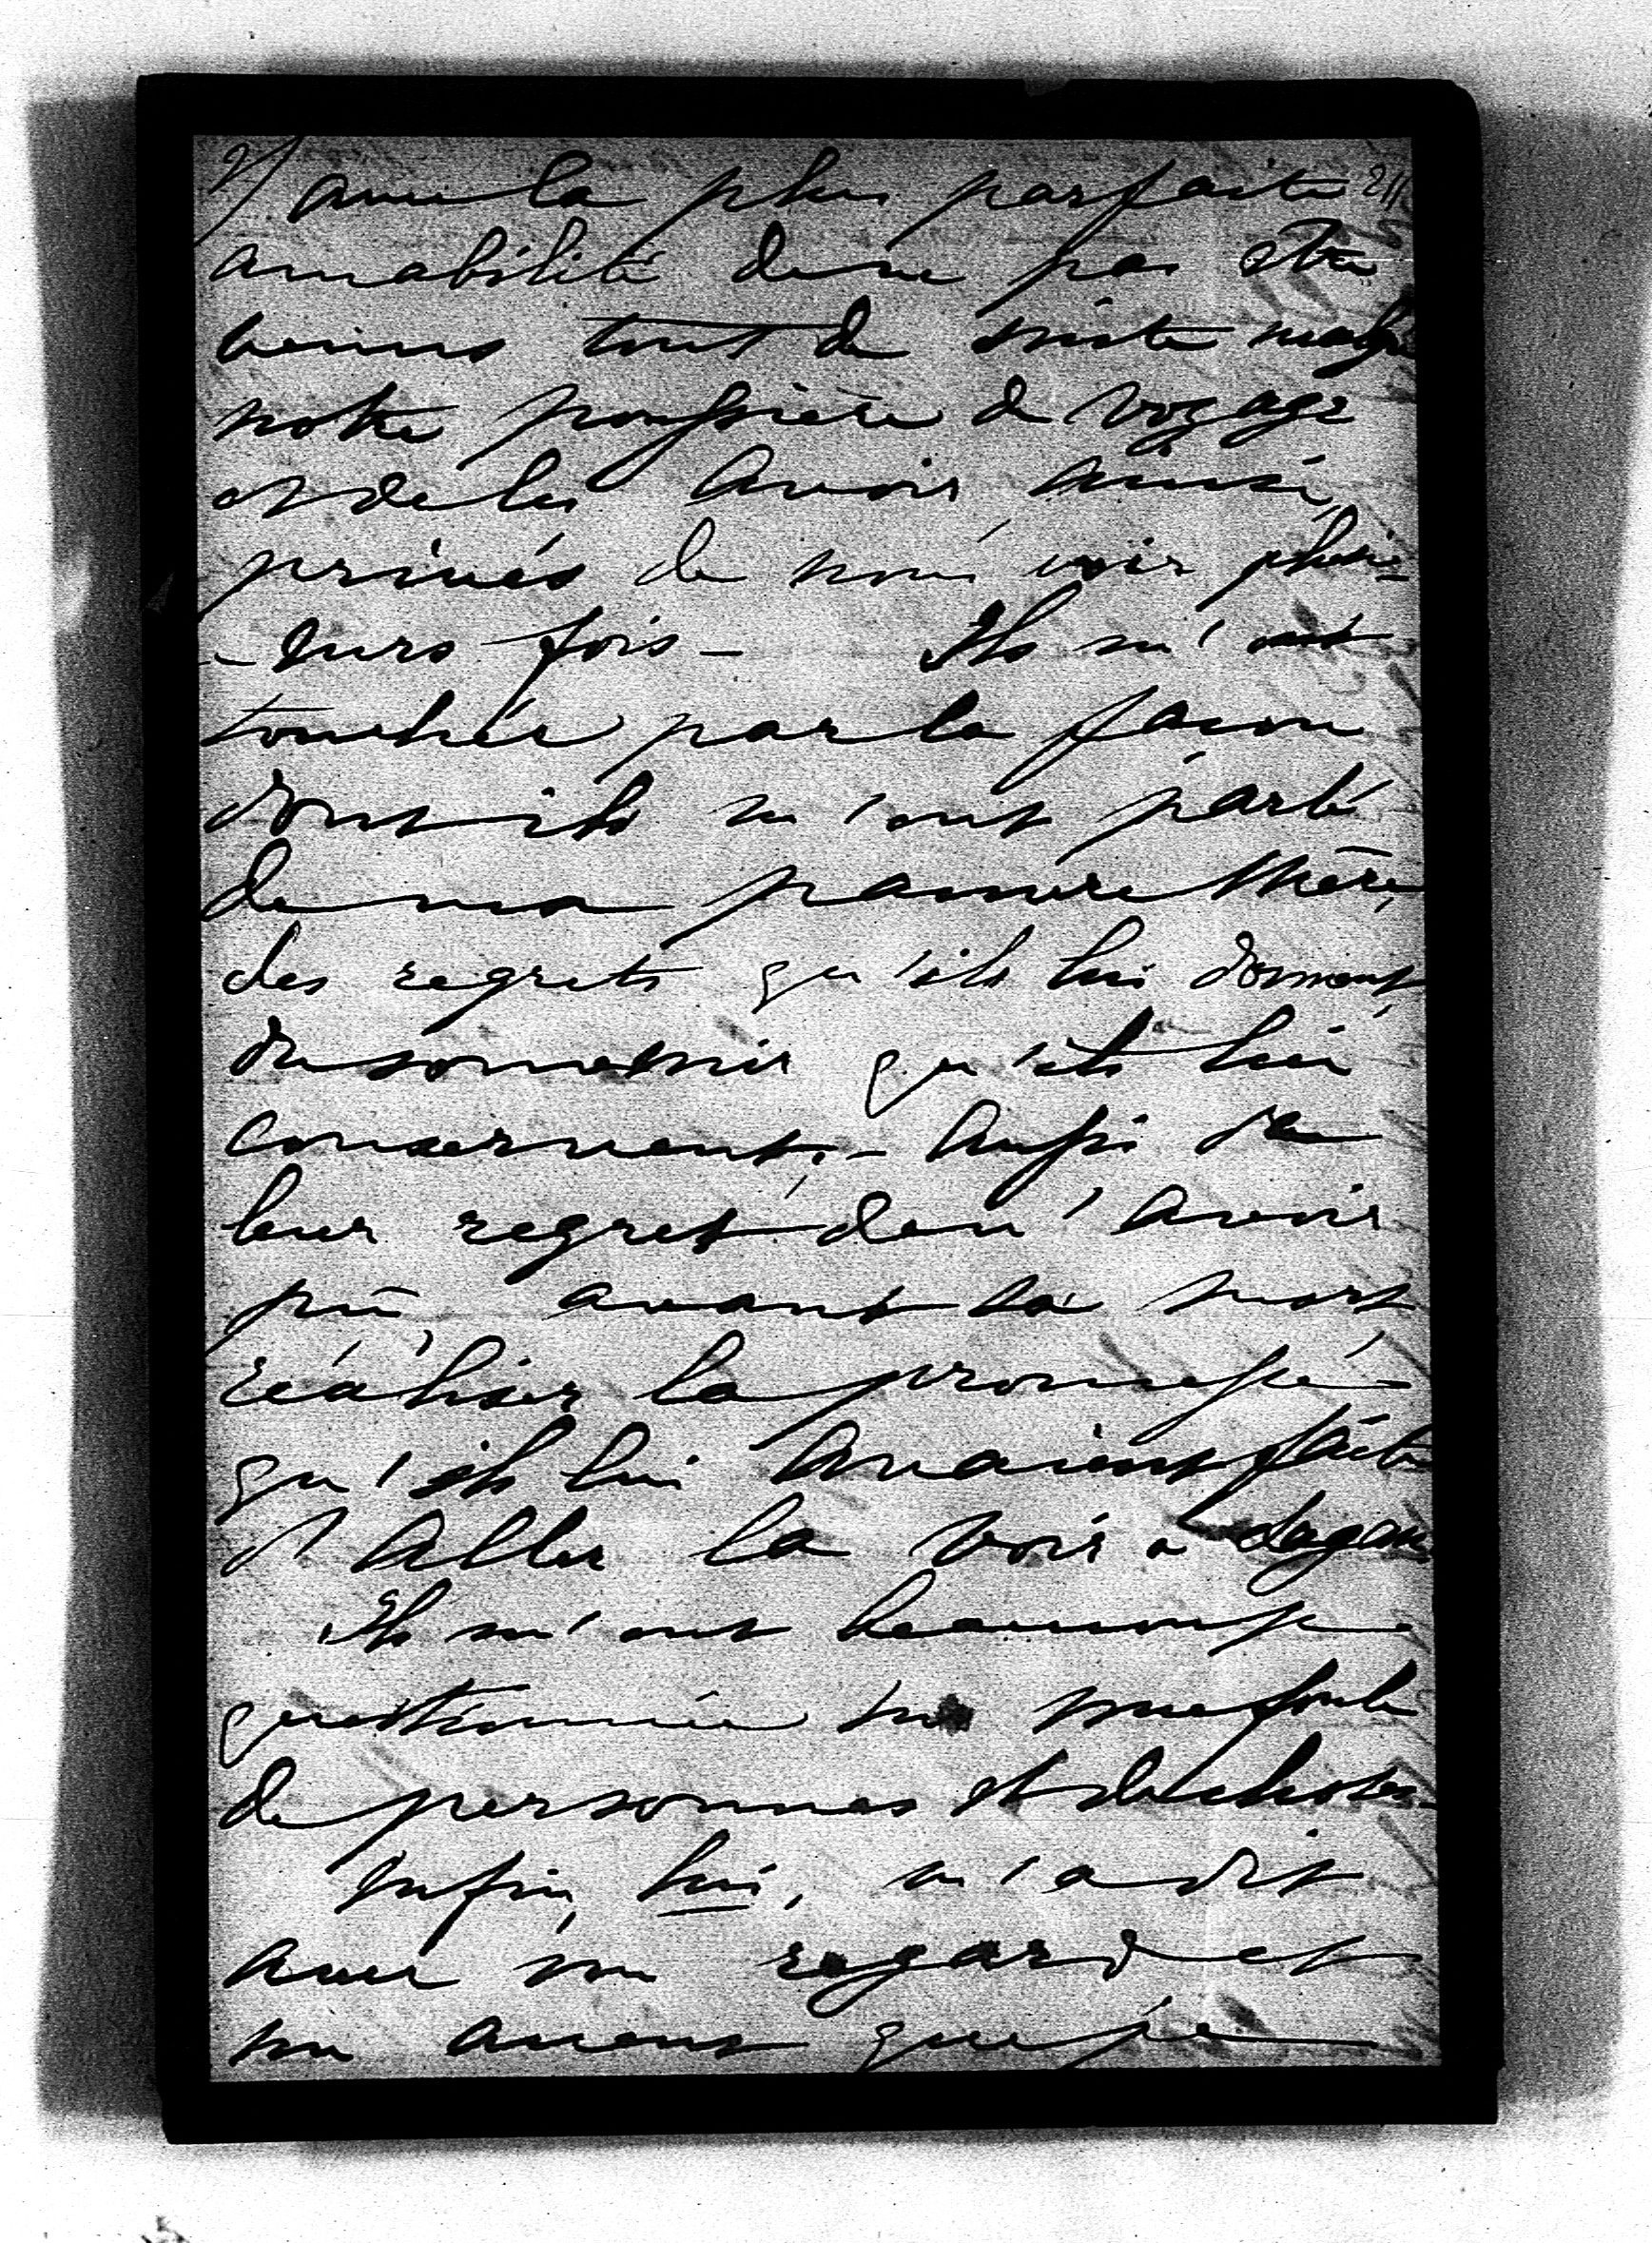 2/ avec la plus parfaite 211
amabilité de ne pas être
venus tout de suite malgré
notre poussière de voyage
et de les avoir ainsi
privés de nous voir plusi-
-eurs fois - Ils m'ont
touchée par la façon
dont ils m'ont parlé
de ma pauvre Mère,
des regrets qu'ils lui donnent,
du souvenir qu'ils lui
conservent, - Aussi de
leur regret de n'avoir
pu, avant sa mort
réaliser la promesse
qu'ils lui avaient faite
d'aller la voir à
Ils m'ont beaucoup
questionnée sur une foule
de personnes et de choses -
Enfin, lui, m'a dit
avec un regard et
un accent que je